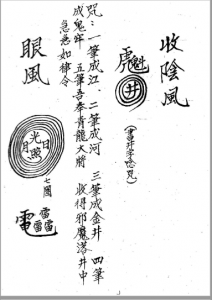 收陰風
魁
虎
井
(書井字唸咒)
咒：一筆成江、二筆成河　三筆成金井　四筆
成鬼牢　五筆吾奉青龍大將　收得邪魔落井中
急急如律令
眼風
日月光照
七圈
雷雷雷
電